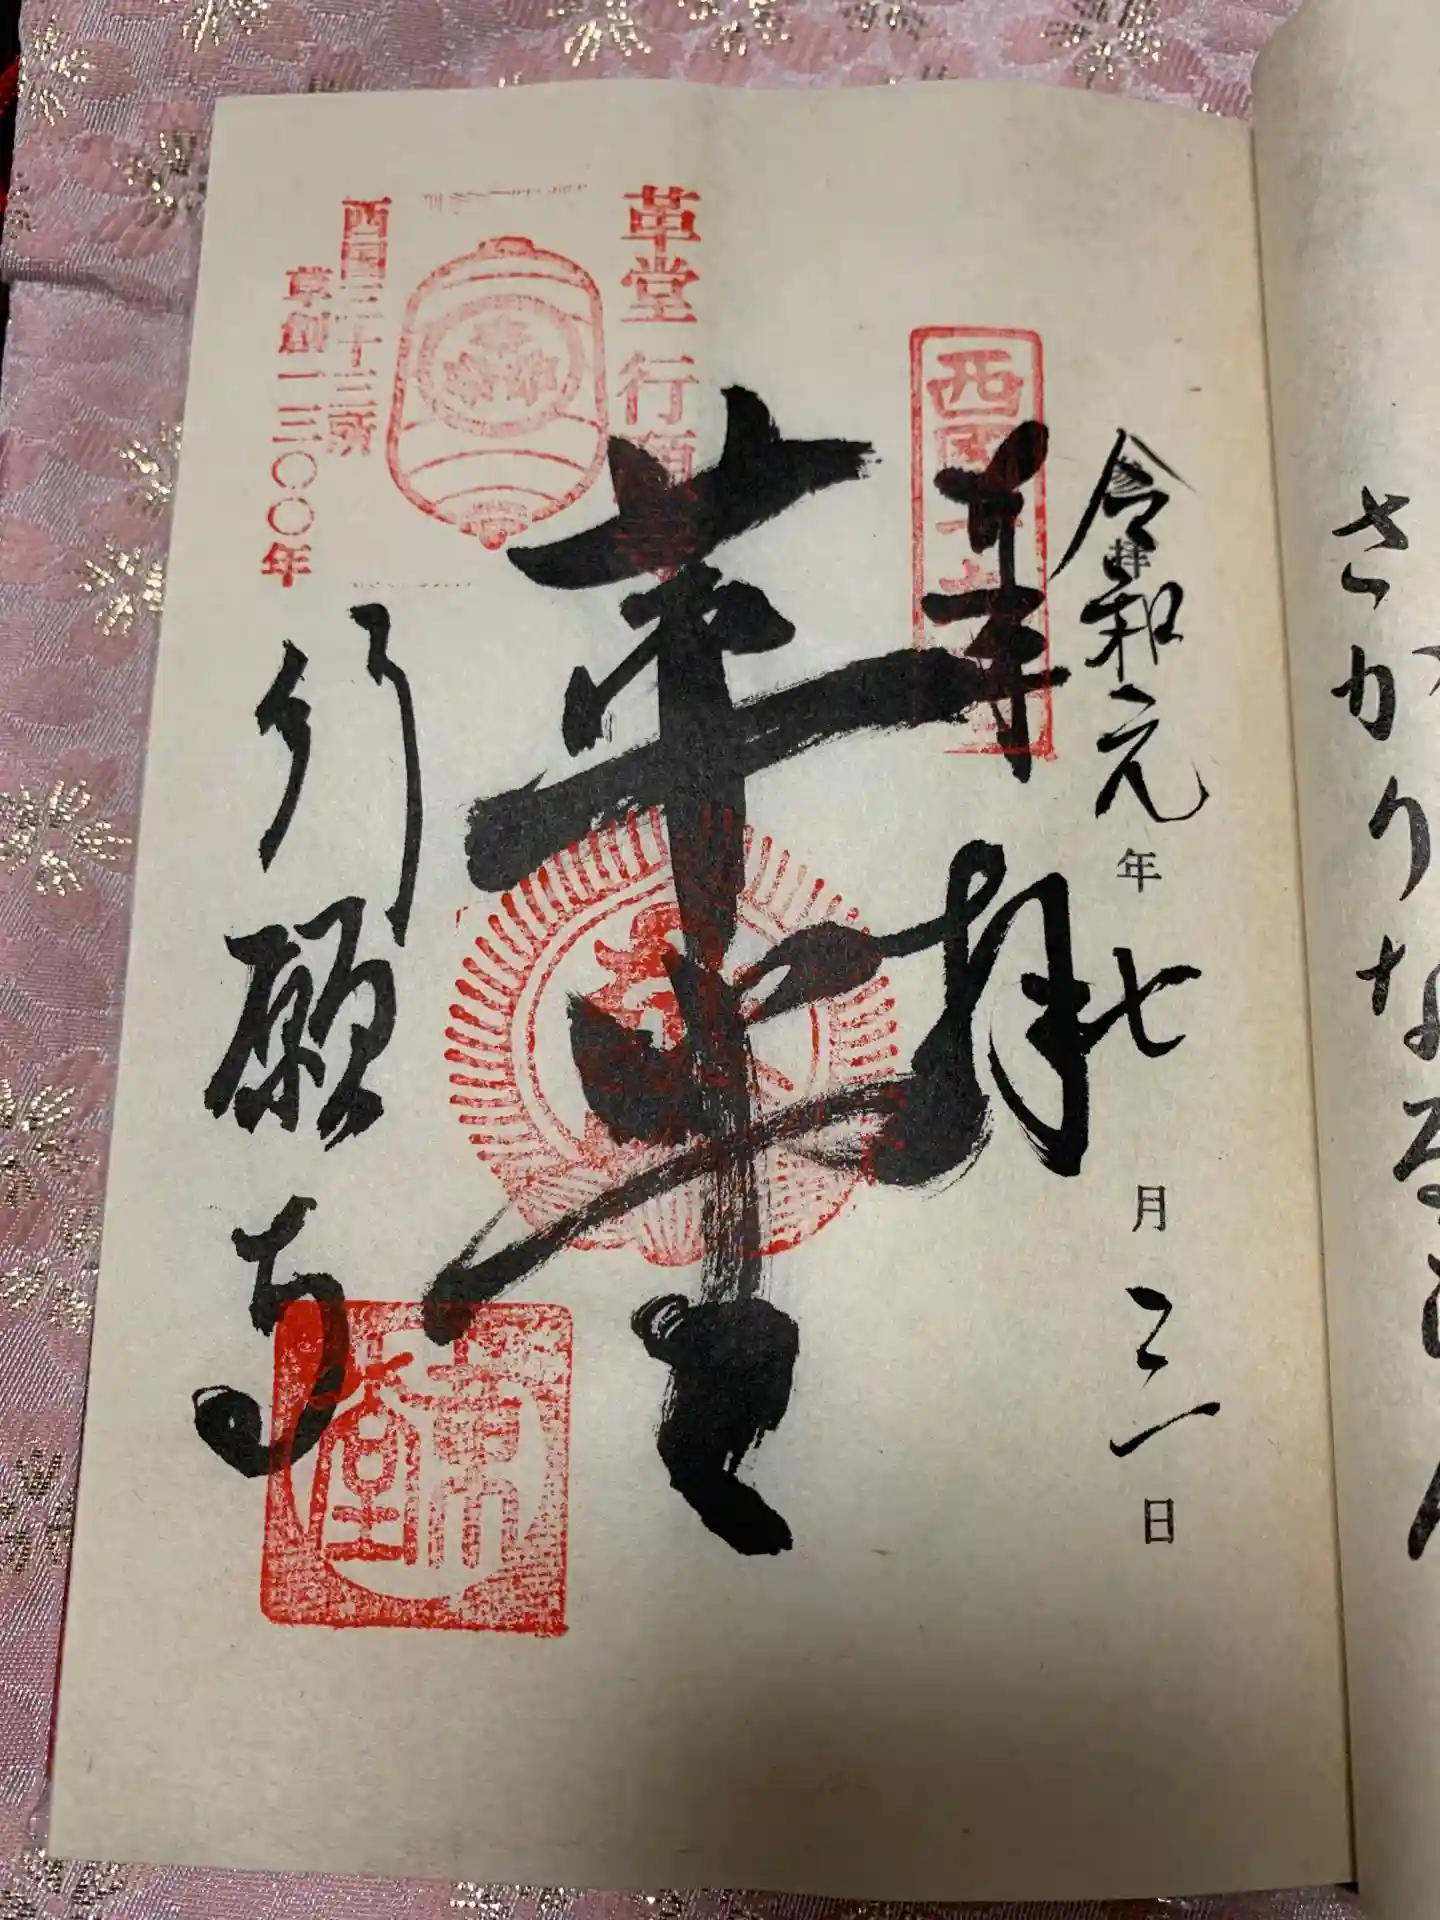 令和元年七月三日
奉拝
西国十九番
革堂
革堂 行願寺
西国三十三所
草創一三〇〇年
行願寺
さかりなる